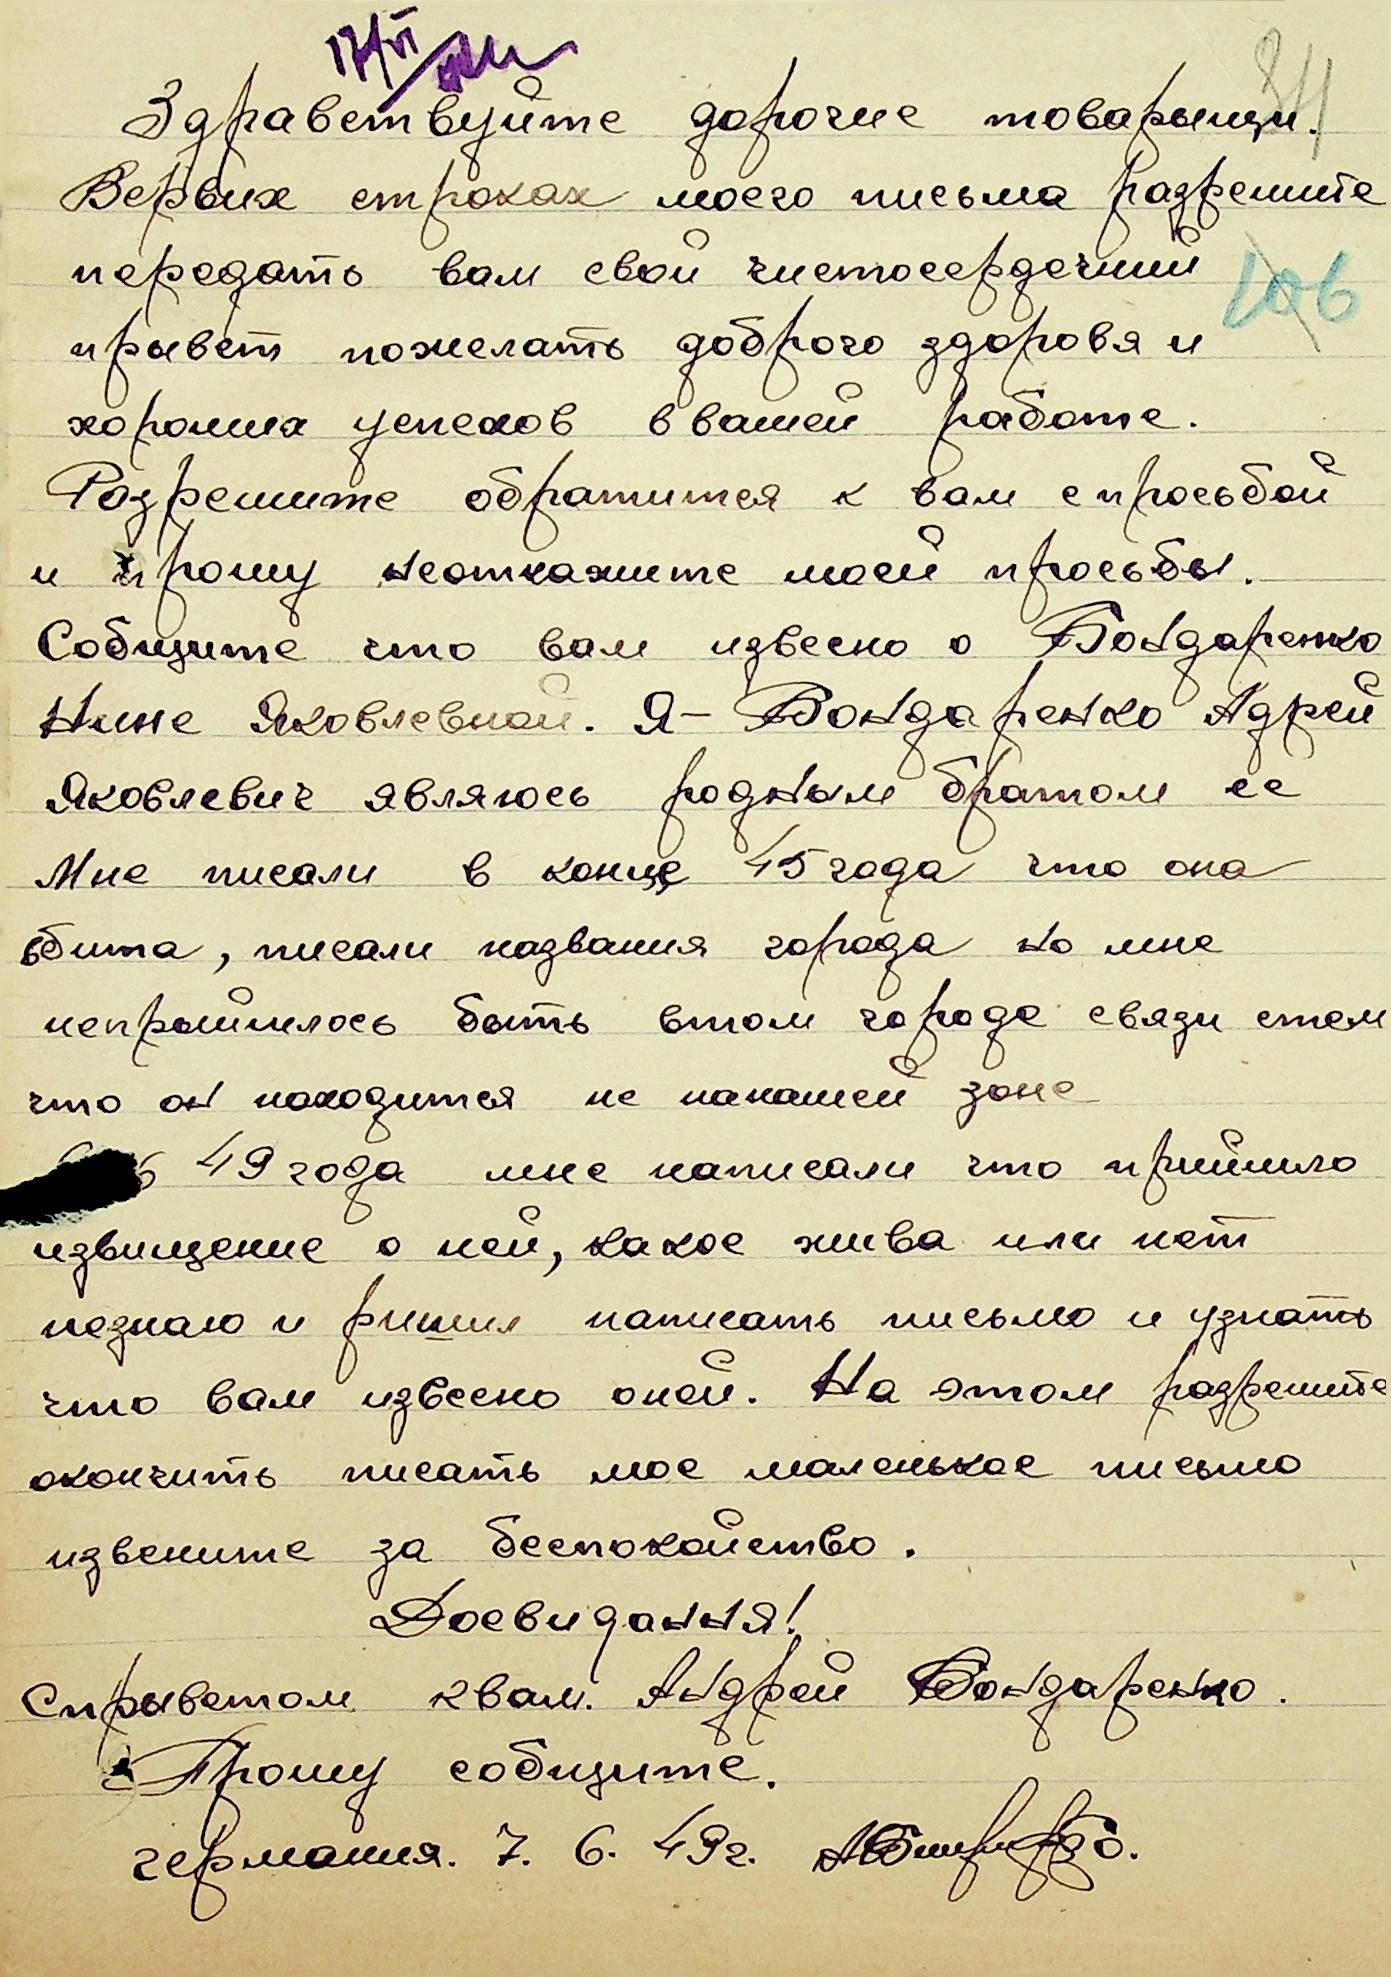 17/VI
34
Здраветвуйте дорогие товарыищи.
Вервых строках моего письма разрешите
передать вам свой чистосердечний
106
прывет пожелать доброго здоровя и
хороших успехов в вашей работе.
Розрешите обратится к вам спросьбой
и прошу неоткажите моей просьбы.
Собщите что вам извесно о Бондаренко
Нине Яковлевной. Я – Бондаренко Адрей
Яковлевич являюсь родным братом ее
Мне писали в конце 45 года что она
убита, писали названия города но мне
непрыйшлось быть втом городе связи стем
что он находится не нанашей зоне
49 года мне написали что прийшло
извищение о ней, какое жива или нет
незнаю и ришил написать письмо и узнать
что вам извесно оней. На этом разрешите
окончить писать мое маленькое письмо
извените за беспокойство.
Досвидання!
Спрыветом квам. Андрей Бондаренко.
Прошу собщите.
германия. 7. 6. 49г.